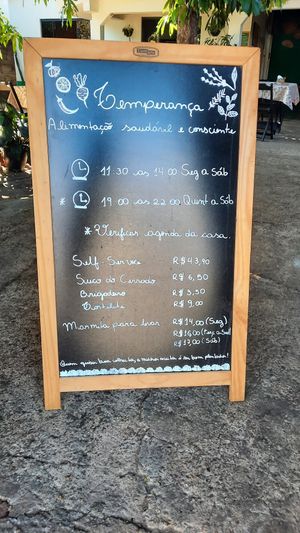 Temperança
Alimentação saudável e consciente
11:30 as 14:00 Seg a Sáb
* 19:00 as 22:00 Quint a Sáb
* Verificar agenda da casa.
Self-Service R$ 43,90
Suco do Cerrado R$ 6,50
Brigadeiro R$ 3,50
R$ 9,00
Marmita para levar R$ 14,00 (Seg)
R$ 16,00
R$ 17,00 (Sáb)
Quem quiser bem colher, a melhor é ser bom plantador!